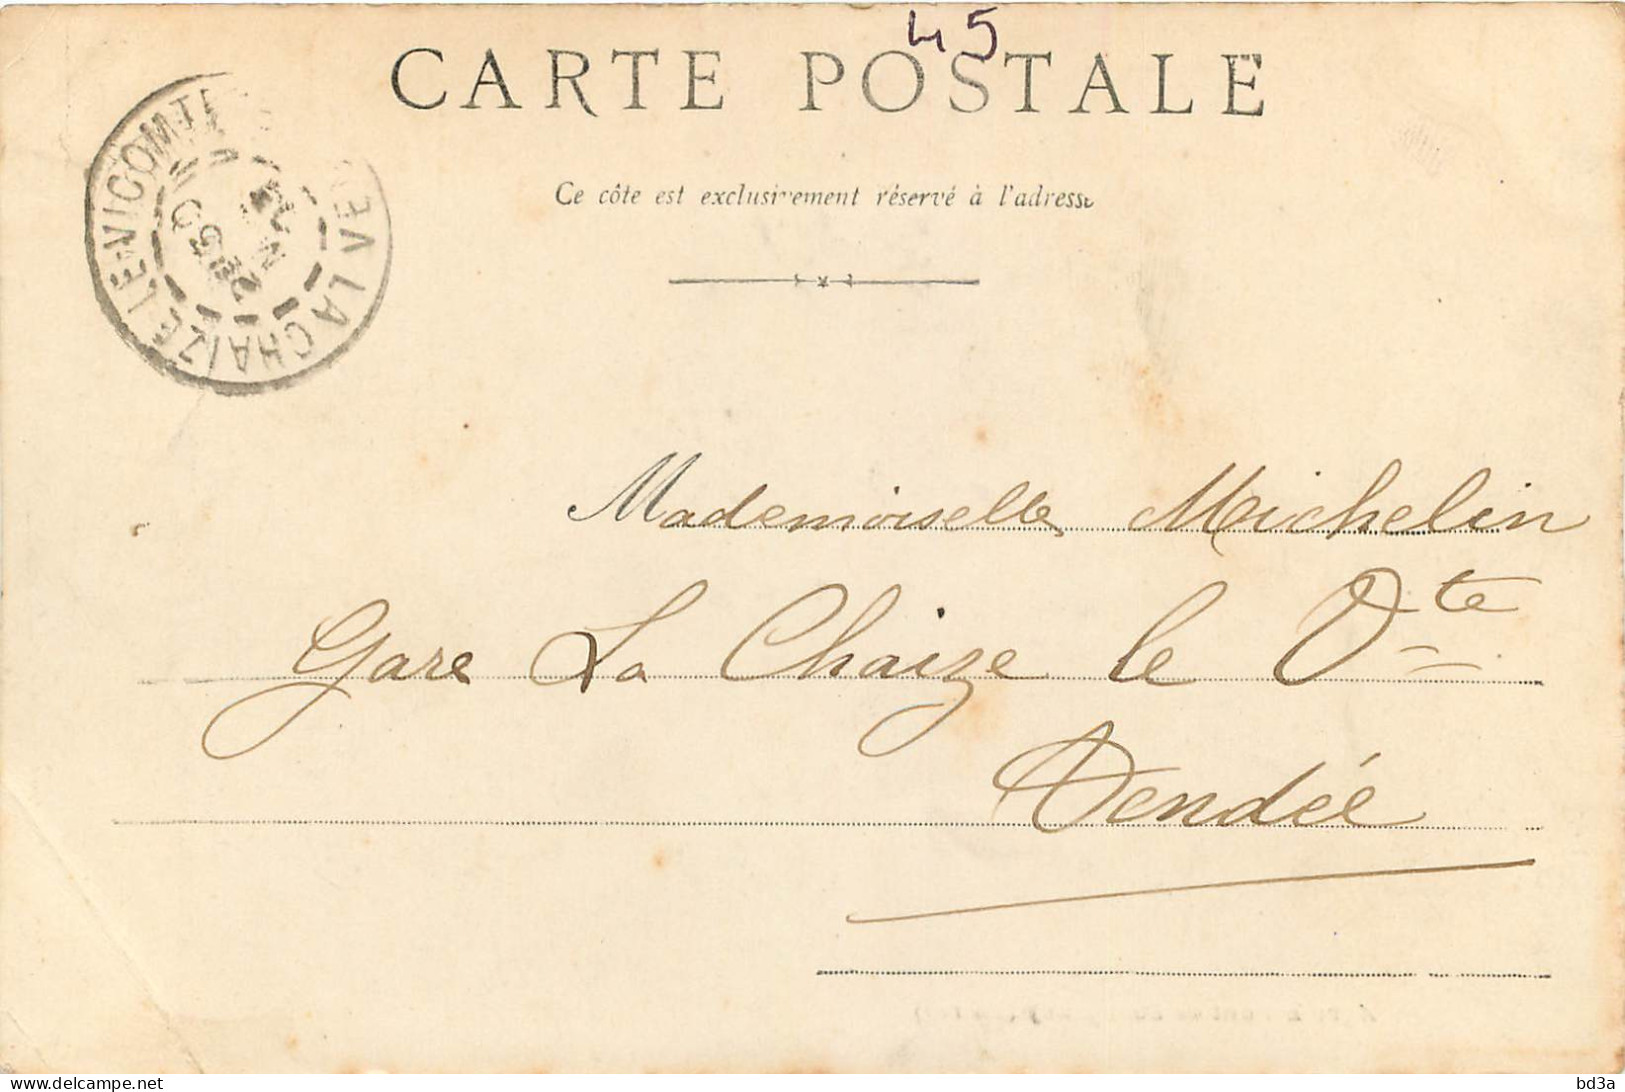 45
CARTE POSTALE
Ce côte est exclusivement réservé à l'adresse
LA CHAIZE LE VICOMTE
Mademoiselle Michelin
Gare La Chaize le Vte
Vendée
delcampe.net
bd3a